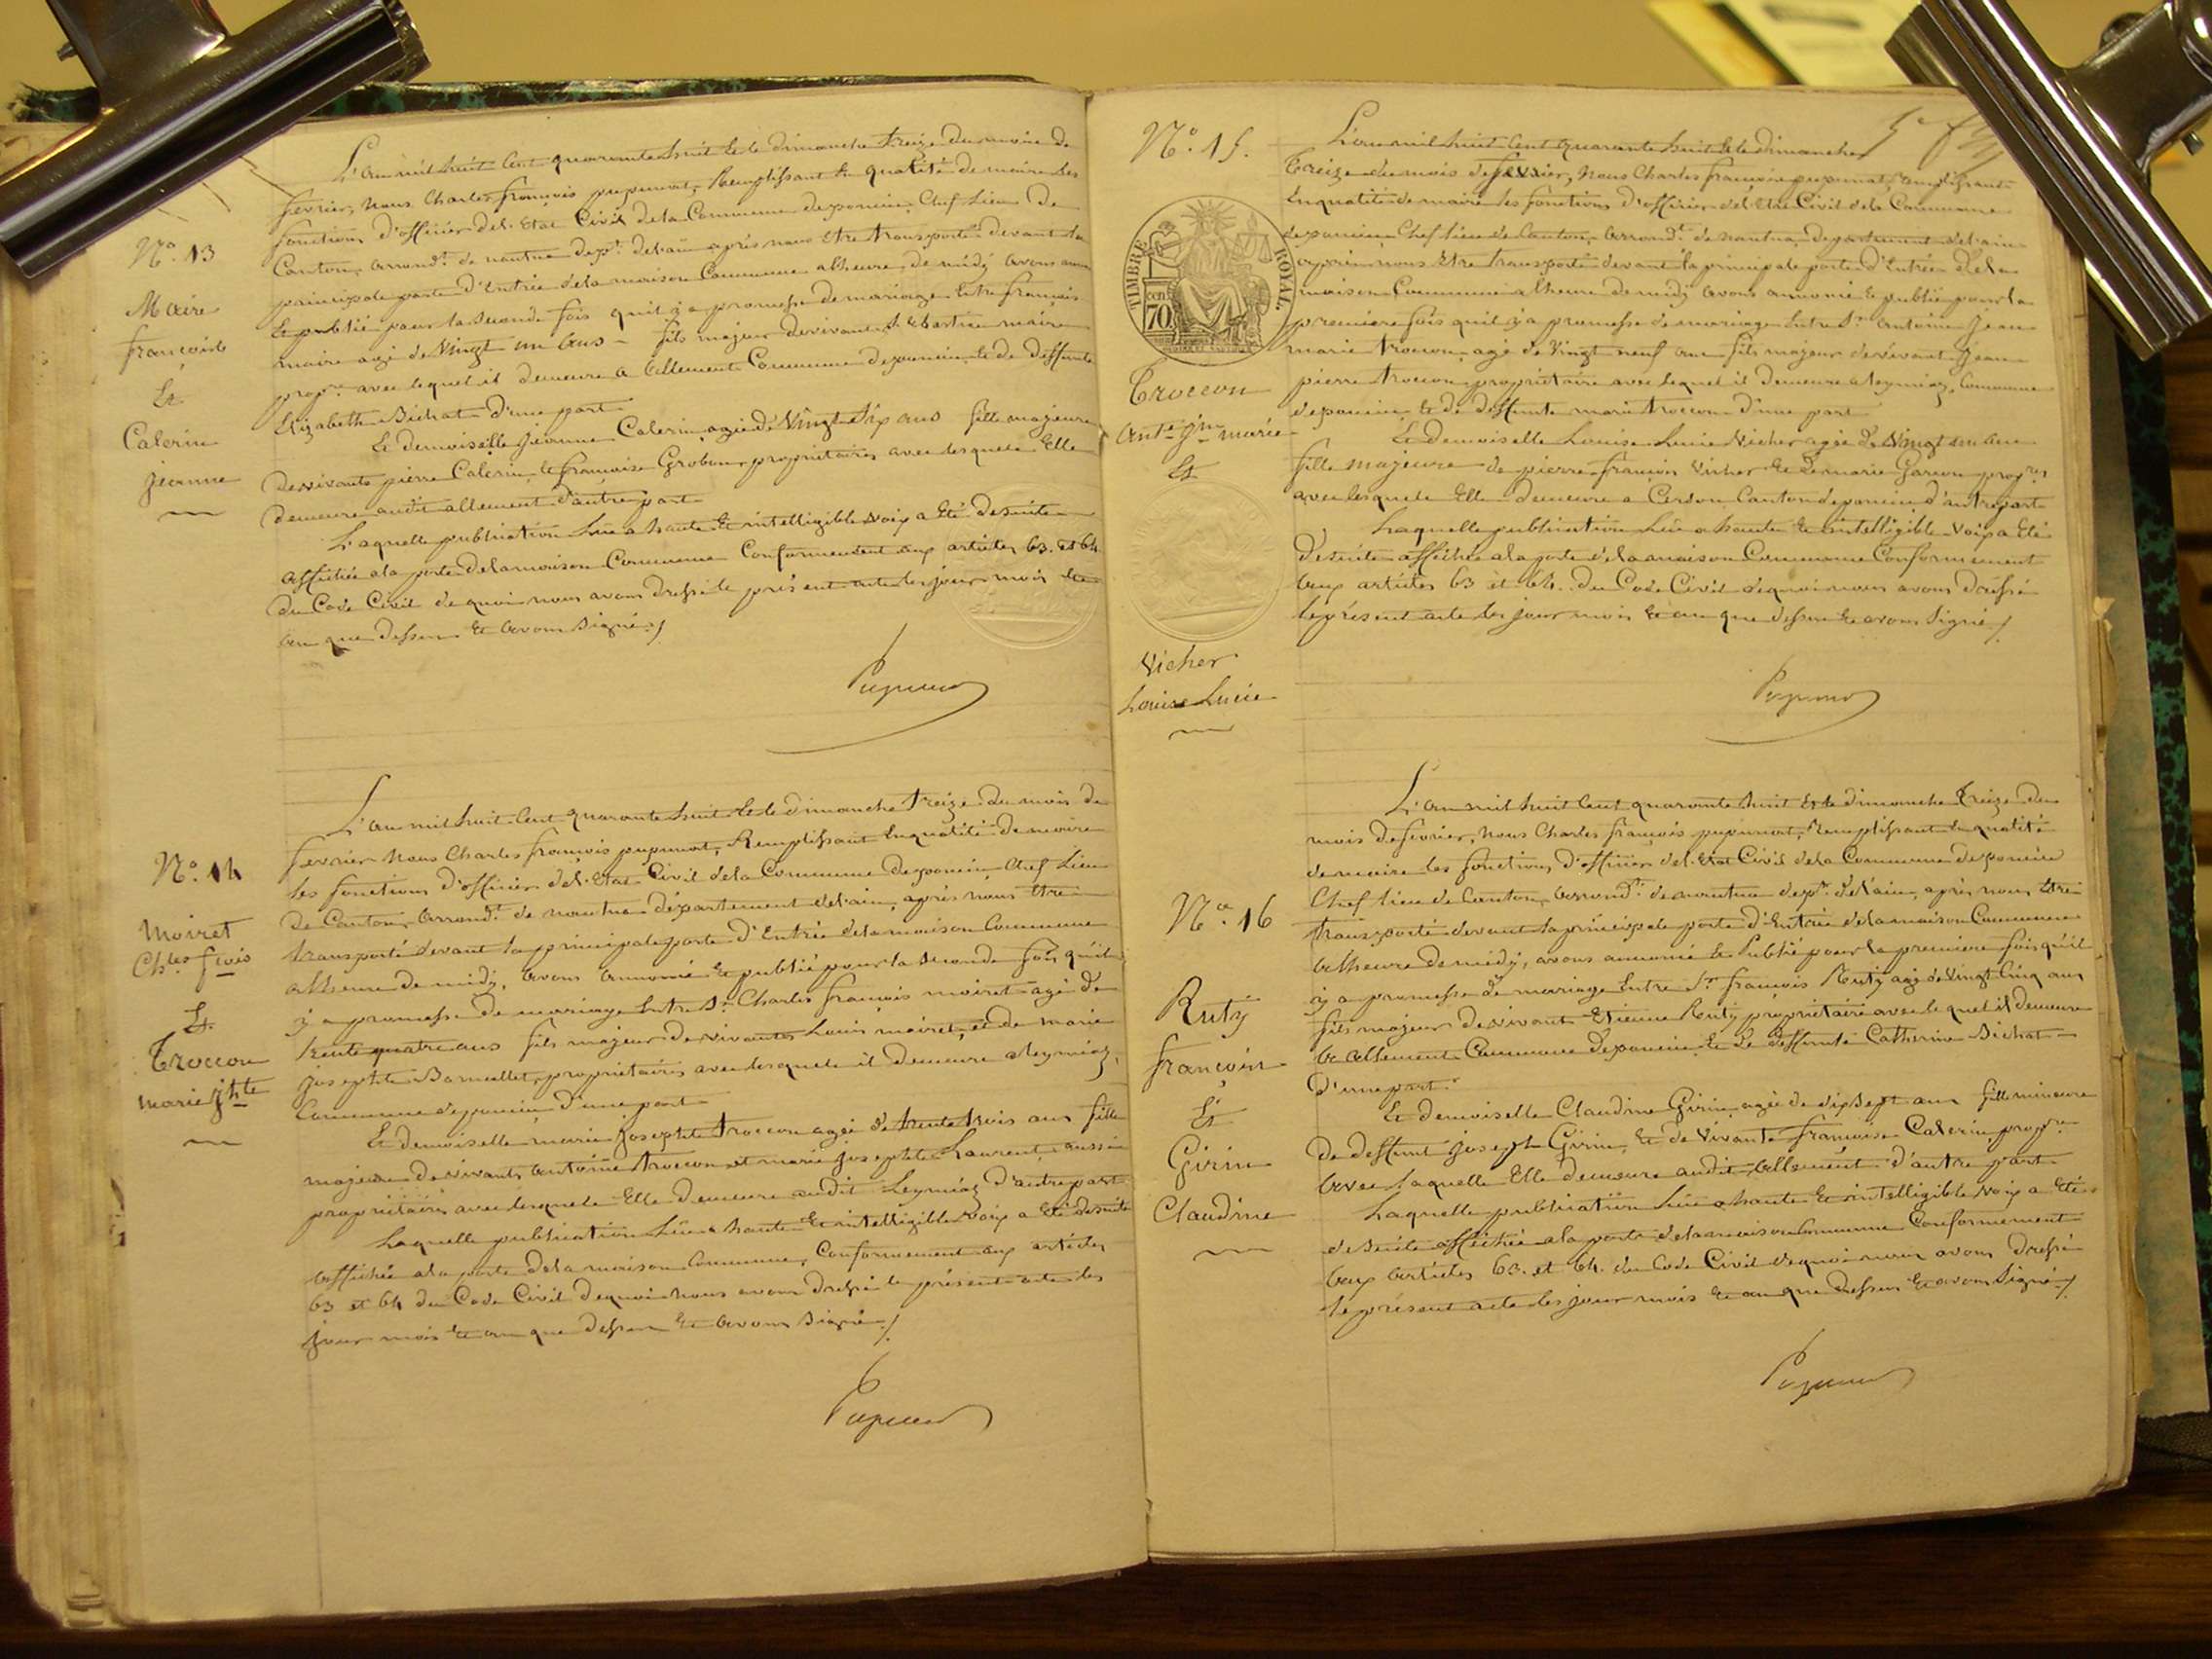 N.º 13
Maire
françois
Et
Calerin
jeanne
L'an mil huit Cent quarante huit Et le dimanche treize du mois de
fevrier, Nous Charles françois pupunat, Remplissant En qualité de maire les
fonctions d'officier del. Etat Civil dela Commune deponcin, Chef Lieu De
Canton, Arrond.t de nantua dep.t delain après nous Etre transporté devant la
principale porte d'Entrée dela maison Commune alheure de midy avons annoncé
Et publié pour la seconde fois quil y a promesse de mariage Entre françois
maire agé de Vingt un ans - fils majeur de vivant Sebastien maire
prop.re avec lequel il demeure a Allement Commune deponcin, Et de deffunte
Elizabeth Bichat d'une part
Et demoiselle jeanne Calerin agée de Vingt Six ans fille majeure
de vivants pierre Calerin, Et françoise Grobon, propriétaires avec lesquels Elle
demeure audit allement d'autre part
Laquelle publication Lüe a haute Et intelligible voix a Eté desuite
affichée ala porte dela maison Commune Conformement aux articles 63. et 64.
du Code Civil de quoi nous avons dressé le présent acte les jour mois Et
an que dessus Et avons Signé ./
Pupunat
N.º 14
Moiret
Ch.les f.çois
Et
Troccon
marie j.hte
L'an mil huit Cent quarante huit Et le dimanche treize du mois de
fevrier Nous Charles françois pupunat, Remplissant En qualité de maire
les fonctions d'officier del. Etat Civil dela Commune deponcin, Chef Lieu
de Canton, Arrond.t de nantua département delain, après nous Etre
transporté devant la principale porte d'Entrée dela maison Commune
alheure de midy, avons annoncé Et publié pour la seconde fois quil
y a promesse de mariage Entre S.r Charles françois moiret agé de
trente quatre ans fils majeur de vivants Louis moiret, et de marie
josephte Barnellet, propriétaires avec lesquels il demeure a Leymiaz,
Commune deponcin, D'une part
Et demoiselle marie josephte troccon agée de trente trois ans fille
majeure de vivants antoine troccon et marie josephte Laurent, aussi
propriétaires avec lesquels Elle demeure audit Leymiaz d'autre part
Laquelle publication Lüe a haute Et intelligible voix a Eté desuite
affichée ala porte dela maison Commune, Conformement aux articles
63 et 64 du Code Civil Dequoi nous avons dressé le présent acte les
jour mois Et an que dessus Et avons Signé ./
Pupunat
N.º 15.
TIMBRE ROYAL
cen
70
Troccon
ant.e j.n marie
Et
Vicher
Louise Lucie
L'an mil huit Cent quarante huit Et le dimanche
treize du mois de fevrier, Nous Charles françois pupunat, Remplissant
En qualité de maire les fonctions d'officier del. Etat Civil dela Commune
deponcin, Chef lieu de Canton, Arrond.t de nantua, Département delain
après nous Etre transporté devant la principale porte d'Entrée dela
maison Commune alheure de midy avons annoncé Et publié pour la
premiere fois quil y a promesse de mariage Entre S.r antoine jean
marie troccon, agé de Vingt neuf ans fils majeur de vivant jean
pierre troccon propriétaire avec lequel il demeure a leymiaz, Commune
deponcin, Et de deffunte marie troccon d'une part
Et demoiselle Louise Lucie Vicher agée de Vingt un ans
fille majeure de pierre françois Vicher Et de marie Garcon prop.res
avec lesquels Elle demeure a Cerdon Canton deponcin, d'autre part
Laquelle publication Lüe a haute Et intelligible voix a Eté
desuite affichée ala porte dela maison Commune Conformement
aux articles 63 et 64. du Code Civil dequoi nous avons dressé
le présent acte les jour mois Et an que dessus Et avons Signé ./
Pupunat
N.º 16
Ruty
françois
Et
Girin
Claudine
L'an mil huit Cent quarante huit Et le dimanche treize du
mois de fevrier, Nous Charles françois pupunat, Remplissant En qualité
de maire les fonctions d'officier del. Etat Civil dela Commune deponcin
Chef lieu de Canton, Arrond.t de nantua dep.t delain, après nous Etre
transporté devant la principale porte d'Entrée dela maison Commune
alheure de midy, avons annoncé Et Publié pour la premiere fois quil
y a promesse de mariage Entre S.r françois Ruty agé de Vingt Cinq ans
fils majeur de vivant Etienne Ruty propriétaire avec lequel il demeure
a Allement Commune deponcin, Et de deffunte Catherine Bichat
d'une part.
Et demoiselle Claudine Girin, agée de dix Sept ans fille mineure
de deffunt joseph Girin, Et de vivante françoise Calerin, prop.re
avec laquelle Elle demeure audit allement d'autre part
Laquelle publication Lüe a haute Et intelligible voix a Eté
de suite affichée ala porte dela maison Commune Conformement
aux articles 63. et 64. du Code Civil dequoi nous avons dressé
le présent acte les jour mois Et an que dessus Et avons Signé ./
Pupunat